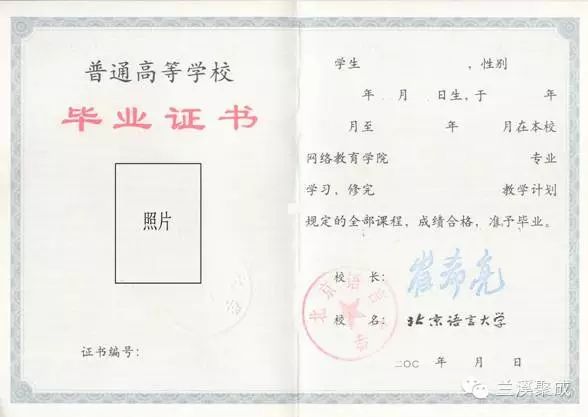 普通高等学校
毕业证书
照片
证书编号：
学生 ，性别
年 月 日生，于 年
月至 年 月在本校
网络教育学院 专业
学习，修完 教学计划
规定的全部课程，成绩合格，准予毕业。
校 长： 崔希亮
校 名： 北京语言大学
二〇〇 年 月 日
兰溪聚成